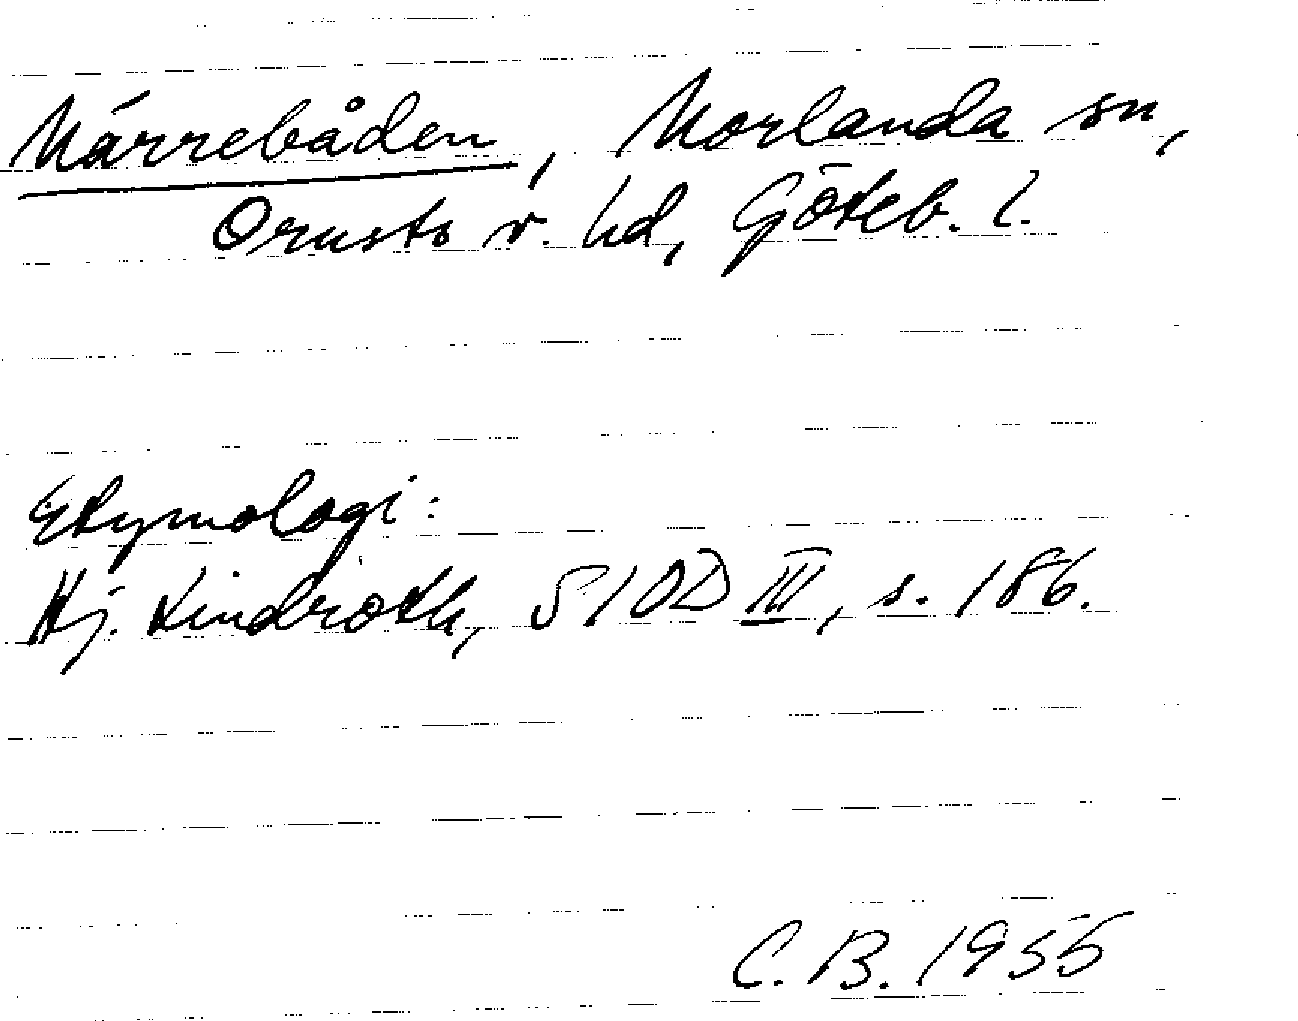 Märrebåden, Morlanda sn,
Orusts v. hd, Göteb. l.
Etymologi:
Hj. Lindroth, SIOD III, s. 186.
C. B. 1955